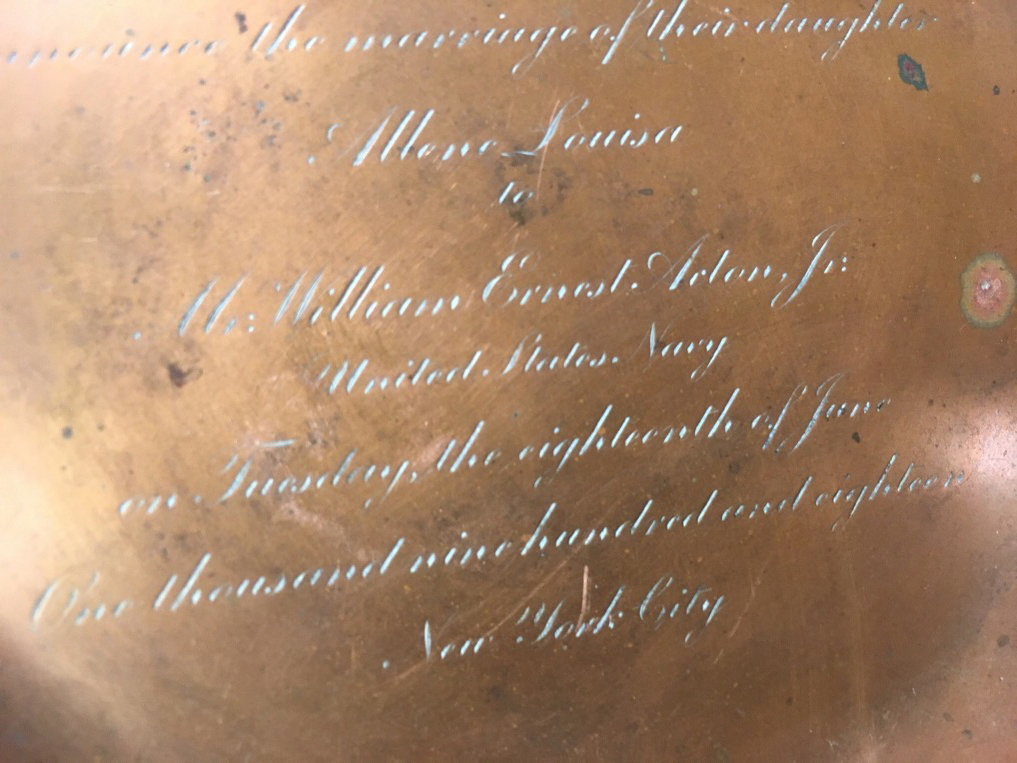 announce the marriage of their daughter
Allene Louisa
to
Mr: William Ernest Acton, Jr:
United States Navy
on Tuesday, the eighteenth of June
One thousand nine hundred and eighteen
New York City